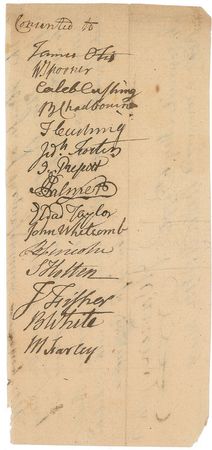 Consented to
James Otis
W Spooner
Caleb Cushing
B Chadbourn
T Cushing
Jed.h Foster
J. Prescott
J Palmer
Eldad Taylor
John Whitcomb
B Lincoln
S Holten
J Fisher
B White
M Farley